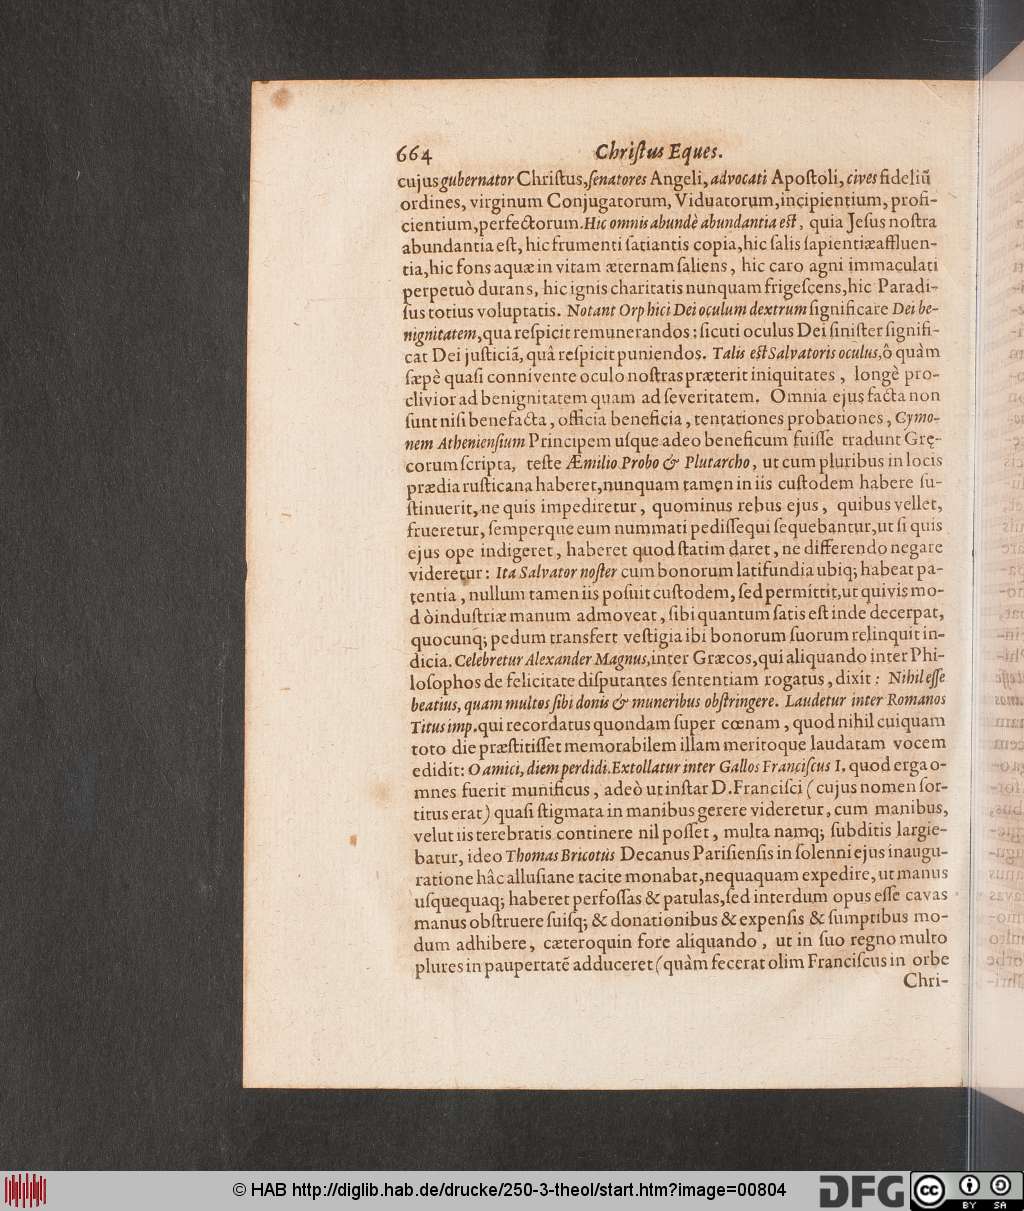 664 Chriſtus Eques.
cujus gubernator Chriſtus, ſenatores Angeli, advocati Apoſtoli, cives fideliũ
ordines, virginum Conjugatorum, Viduatorum, incipientium, profi-
cientium, perfectorum. Hic omnis abundè abundantia eſt, quia Jeſus noſtra
abundantia eſt, hic frumenti ſatiantis copia, hic ſalis ſapientiæ affluen-
tia, hic fons aquæ in vitam æternam ſaliens, hic caro agni immaculati
perpetuò durans, hic ignis charitatis nunquam frigeſcens, hic Paradi-
ſus totius voluptatis. Notant Orphici Dei oculum dextrum ſignificare Dei be-
nignitatem, qua reſpicit remunerandos: ſicuti oculus Dei ſiniſter ſignifi-
cat Dei juſticiã, quâ reſpicit puniendos. Talis eſt Salvatoris oculus, ô quàm
ſæpè quaſi connivente oculo noſtras præterit iniquitates, longè pro-
clivior ad benignitatem quam ad ſeveritatem. Omnia ejus facta non
ſunt niſi benefacta, officia beneficia, tentationes probationes, Cymo-
nem Athenienſium Principem uſque adeo beneficum fuiſſe tradunt Grę-
corum ſcripta, teſte Æmilio Probo & Plutarcho, ut cum pluribus in locis
prædia ruſticana haberet, nunquam tamen in iis cuſtodem habere ſu-
ſtinuerit, ne quis impediretur, quominus rebus ejus, quibus vellet,
frueretur, ſemperque eum nummati pediſſequi ſequebantur, ut ſi quis
ejus ope indigeret, haberet quod ſtatim daret, ne differendo negare
videretur: Ita Salvator noſter cum bonorum latifundia ubiq; habeat pa-
tentia, nullum tamen iis poſuit cuſtodem, ſed permittit, ut quivis mo-
dò induſtriæ manum admoveat, ſibi quantum ſatis eſt inde decerpat,
quocunq; pedum transfert veſtigia ibi bonorum ſuorum relinquit in-
dicia. Celebretur Alexander Magnus, inter Græcos, qui aliquando inter Phi-
loſophos de felicitate diſputantes ſententiam rogatus, dixit: Nihil eſſe
beatius, quam multos ſibi donis & muneribus obſtringere. Laudetur inter Romanos
Titus imp. qui recordatus quondam ſuper cœnam, quod nihil cuiquam
toto die præſtitiſſet memorabilem illam meritoque laudatam vocem
edidit: O amici, diem perdidi. Extollatur inter Gallos Franciſcus I. quod erga o-
mnes fuerit munificus, adeò ut inſtar D. Franciſci (cujus nomen ſor-
titus erat) quaſi ſtigmata in manibus gerere videretur, cum manibus,
velut iis terebratis continere nil poſſet, multa namq; ſubditis largie-
batur, ideo Thomas Bricotus Decanus Pariſienſis in ſolenni ejus inaugu-
ratione hâc alluſiane tacite monabat, nequaquam expedire, ut manus
uſquequaq; haberet perfoſſas & patulas, ſed interdum opus eſſe cavas
manus obſtruere ſuiſq; & donationibus & expenſis & ſumptibus mo-
dum adhibere, cæteroquin fore aliquando, ut in ſuo regno multo
plures in paupertatẽ adduceret (quàm fecerat olim Franciſcus in orbe
Chri-
© HAB http://diglib.hab.de/drucke/250-3-theol/start.htm?image=00804
DFG
cc
BY SA